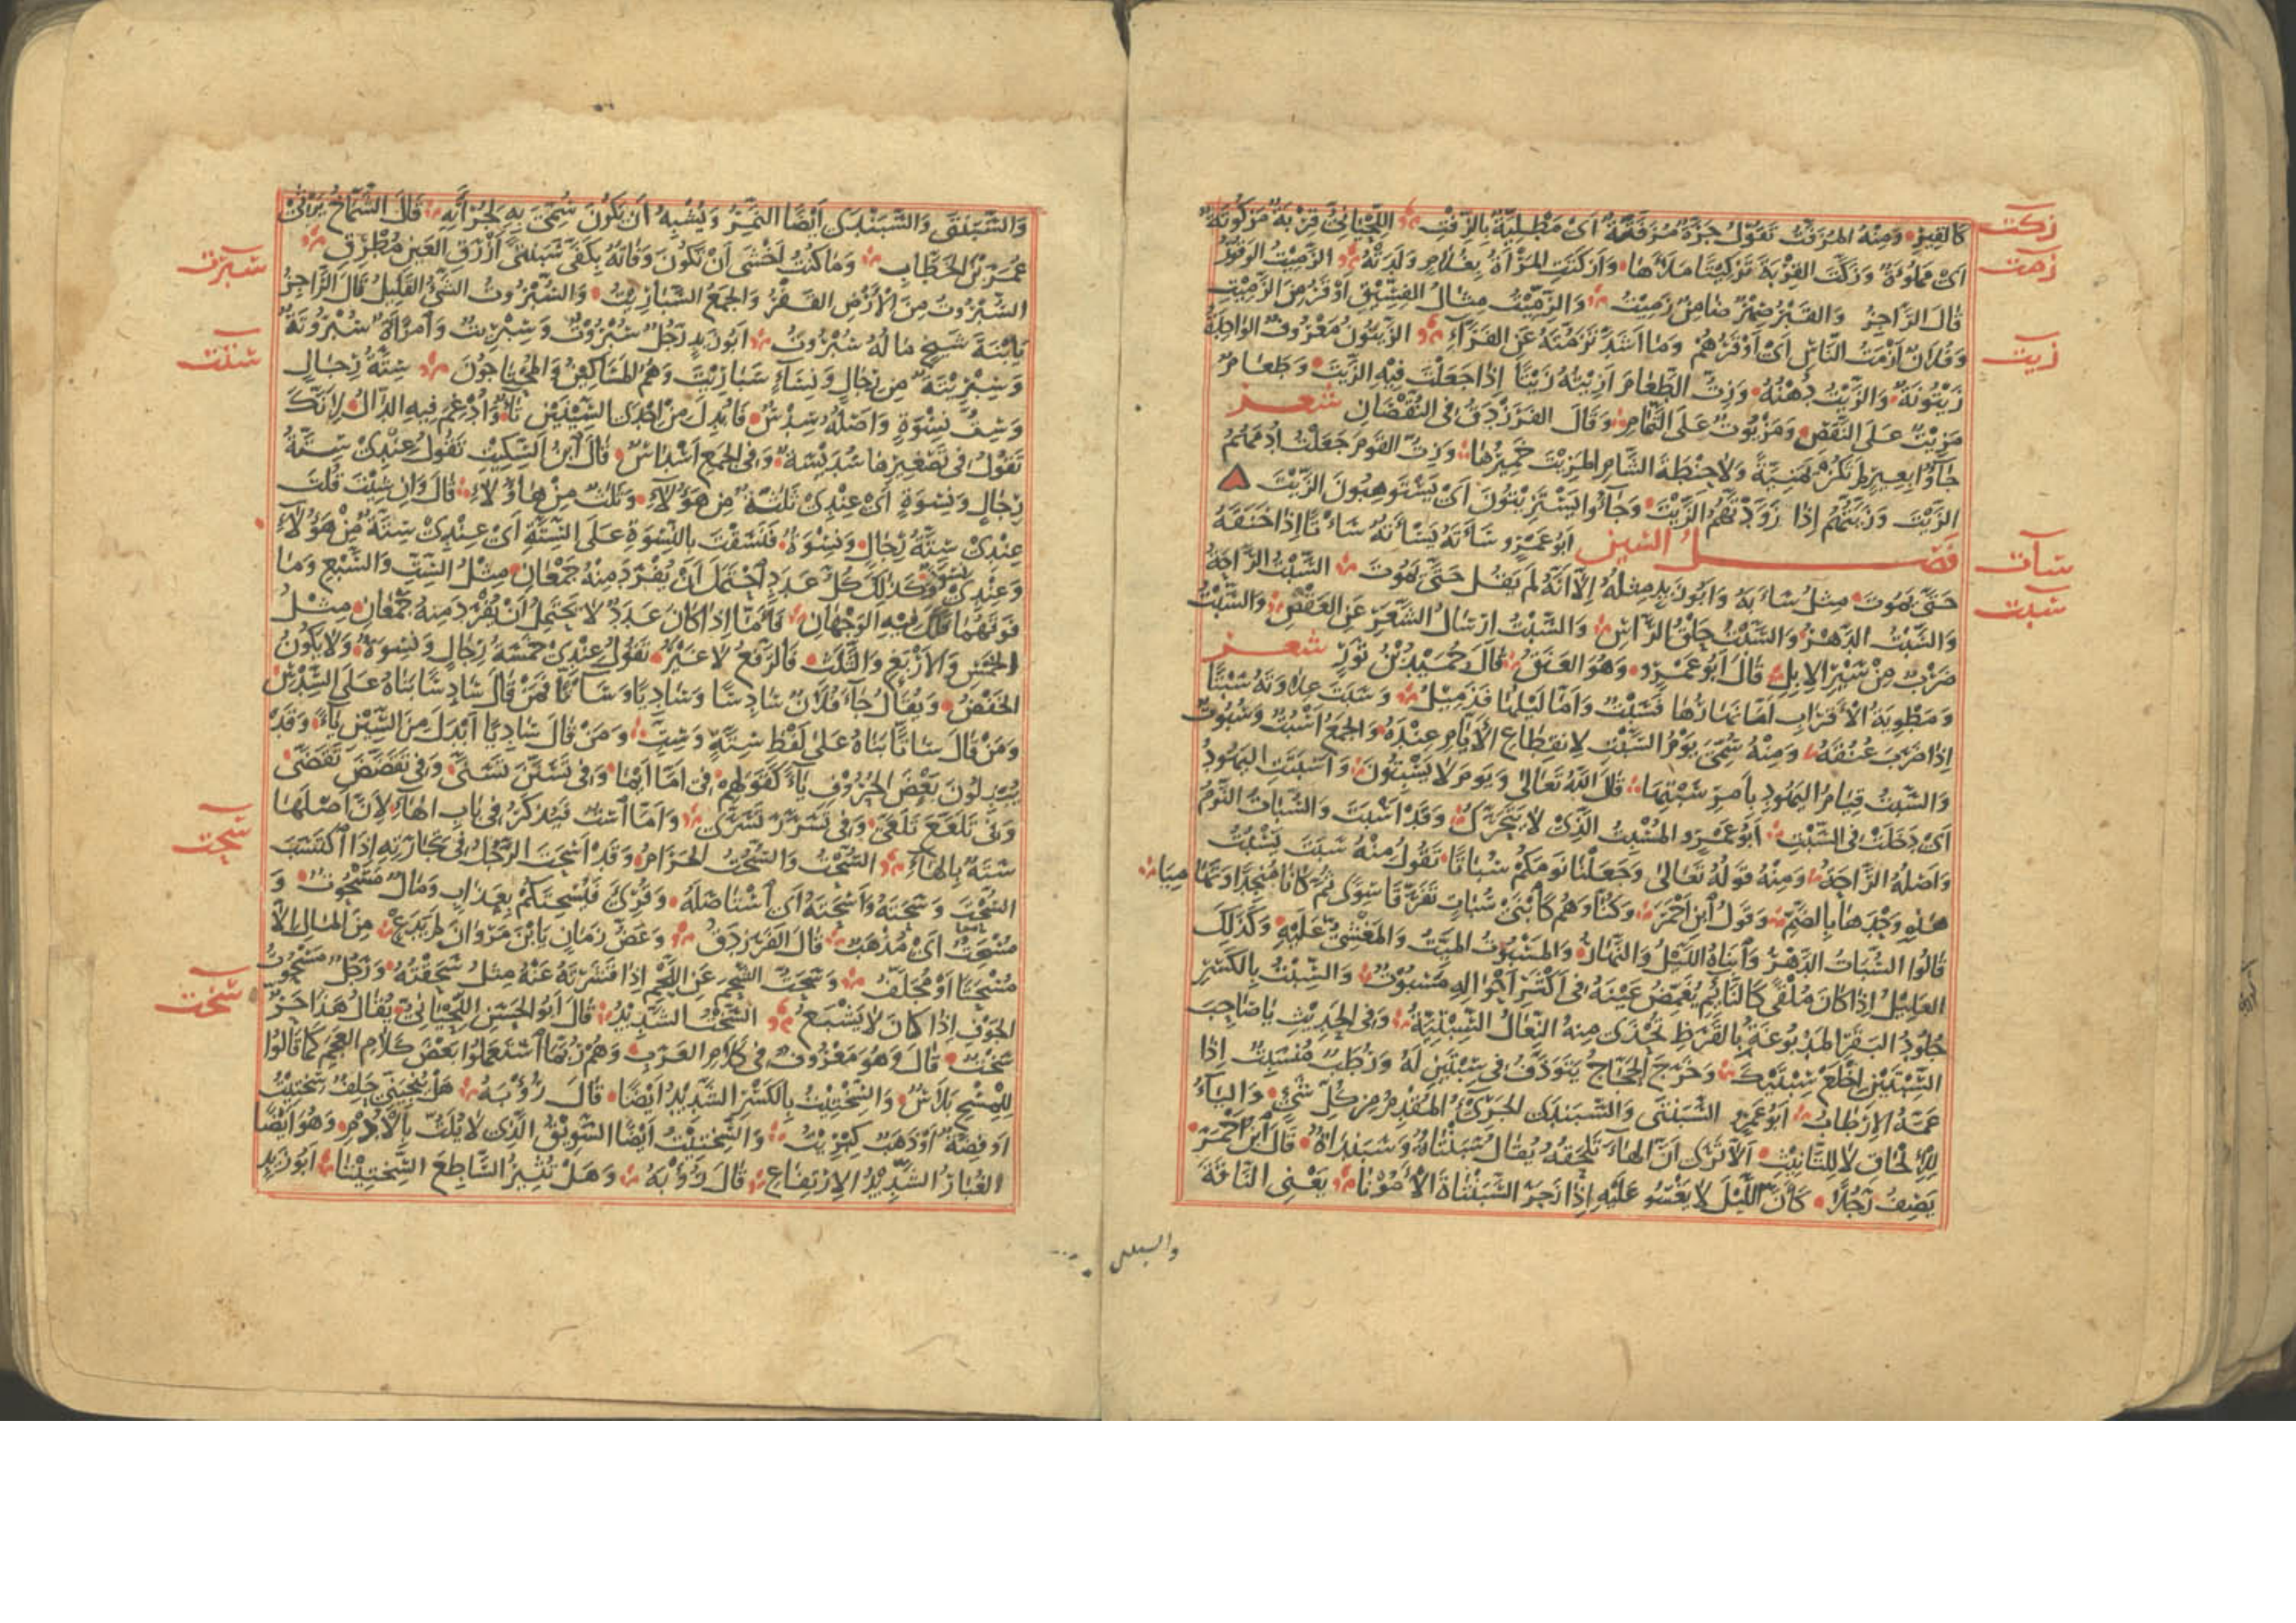 زكت
زمت
زيت
سأت
سبت
كالقير ومنه المزفت تقول جرة مزفتة اى مطلية بالزفت اللحيانى قربة مزكوتة
اى مملوءة وزكت القربة تزكيتا ملأتها وازكتت المرأة بغلام ولدته الزميت الوقور
قال الراجز والقبر صهر ضامن زميت والزميت مثال الفسيق اوقر من الزميت
وفلان ازمت الناس اى اوقرهم وما اشد تزمته عن الفراء الزيتون معروف الواحدة
زيتونة والزيت دهنه وزت الطعام ازيته زيتا اذا جعلت فيه الزيت وطعام
مزيت على النقص ومزيوت على التمام وقال الفرزدق فى النقصان شعر
جاؤا بعير لم تكن هجرية ولا حنطة الشام المزيت خميرها وزت القوم جعلت ادمهم
الزيت وزيتهم اذا زودتهم الزيت وجاؤا يستزيتون اى يستوهبون الزيت
فصل السين ابو عمرو سأته يسأته سأتا اذا خنقه
حتى يموت مثل سأبه وابو زيد مثله الا انه لم يقل حتى يموت السبت الراحة
والسبت الدهر والسبت حلق الراس والسبت ارسال الشعر عن العقص والسبت
ضرب من سير الابل قال ابو عمرو وهو العنق قال حميد بن ثور شعر
ومطوية الاقراب اما نهارها فسبت واما ليلها فذميل وسبت علاوته سبتا
اذا ضرب عنقه ومنه سمى يوم السبت لانقطاع الايام عنده والجمع اسبت وسبوت
والسبت قيام اليهود بامر سبتها قال الله تعالى ويوم لا يسبتون واسبتت اليهود
اى دخلت فى السبت ابو عمرو المسبت الذى لا يتحرك وقد اسبت والسبات النوم
واصله الراحة ومنه قوله تعالى وجعلنا نومكم سباتا تقول منه سبت يسبت
هذه وحدها بالضم وقول ابن احمر وكنا وهم كابنى سبات تفرقا سوى ثم كانا منجدا وتهاميا
قالوا السبات الدهر وابناه الليل والنهار والمسبوت الميت والمغشى عليه وكذلك
العليل اذا كان ملقى كالنائم يغمض عينه فى اكثر احواله مسبوت والسبت بالكسر
جلود البقر المدبوغة بالقرظ تحذى منه النعال السبتية وفى الحديث يا صاحب
السبتين اخلع سبتيك وخرج الحجاج يتوذف فى سبتين له ورطب منسبت اذا
عمه الارطاب ابو عمرو السبنتى والسبندى الجرئ المقدم من كل شئ والياء
للالحاق لا للتانيث الا ترى ان الهاء تلحقه يقال سبنتاة وسبنداة قال ابن احمر
يصف رجلا كان الليل لا يغسو عليه اذا زجر السبنتاة الامونا يعنى الناقة
والسبنتى
سبرت
ستت
سحت
سخت
والسبنتى والسبندى ايضا النمر ويشبه ان يكون سمى به لجرأته قال الشماخ يرثى
عمر بن الخطاب وما كنت اخشى ان تكون وفاته بكفى سبنتى ازرق العين مطرق
السبروت من الارض القفر والجمع السباريت والسبروت الشئ القليل قال الراجز
يا ابنة شيخ ما له سبروت ابو زيد رجل سبروت وسبريت وامرأة سبروتة
وسبريتة من رجال ونساء سباريت وهم المساكين والمحتاجون ستة رجال
وست نسوة واصله سدس فابدل من احدى السينين تاء وادغم فيه الدال لانك
تقول فى تصغيرها سديسة وفى الجمع اسداس قال ابن السكيت تقول عندى ستة
رجال ونسوة اى عندى ثلثة من هؤلاء وثلث من هاؤلاء قال وان شئت قلت
عندى ستة رجال ونسوة فنسقت بالنسوة على الستة اى عندى ستة من هؤلاء
وعندى نسوة وكذلك كل عدد احتمل ان يفرد منه جمعان مثل الست والسبع وما
فوقهما فلك فيه الوجهان فاما اذا كان عدد لا يحتمل ان يفرد منه جمعان مثل
الخمس والاربع والثلث فالرفع لا غير تقول عندى خمسة رجال ونسوة ولا يكون
الخفض ويقال جاء فلان سادسا وساديا وساتا فمن قال سادسا بناه على السدس
ومن قال ساتا بناه على لفظ ستة وست ومن قال ساديا ابدل من السين ياء وقد
يبدلون بعض الحروف ياء كقولهم فى اما ايما وفى تسنن تسنى وفى تقضض تقضى
وفى تلعع تلعى وفى تسرر تسرى واما است فيذكر فى باب الهاء لان اصلها
سته بالهاء السحت والسحت الحرام وقد اسحت الرجل فى تجارته اذا اكتسب
السحت وسحته واسحته اى استاصله وقرئ فيسحتكم بعذاب ومال مسحوت و
مسحت اى مذهب قال الفرزدق وعض زمان يا ابن مروان لم يدع من المال الا
مسحتا او مجلف وسحت الشحم عن اللحم اذا قشرته عنه مثل سحفته ورجل مسحوت
الجوف اذا كان لا يشبع السخت الشديد قال ابو الحسن اللحيانى يقال هذا حر
سخت قال وهو معروف فى كلام العرب وهم ربما استعملوا بعض كلام العجم كما قالوا
للمسح بلاس والسختيت بالكسر الشديد ايضا قال رؤبة هل ينجينى حلف سختيت
او فضة او ذهب كبريت والسختيت ايضا السويق الذى لا يلت بالادم وهو ايضا
الغبار الشديد الارتفاع قال رؤبة وهل تثير الساطع السختيتا ابو زيد